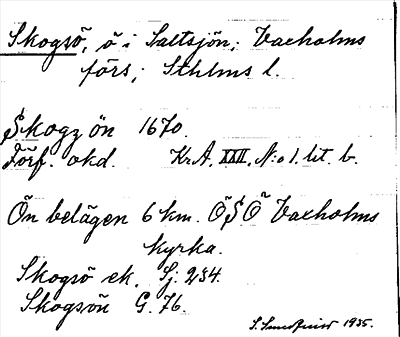 Skogsö, ö i Saltsjön; Vaxholms
förs; Sthlms l.
Skogz ön 1670.
Förf. okd. Kr.A. XXII. N:o 1. lit. b.
Ön belägen 6 km. ÖSÖ Vaxholms
kyrka.
Skogsö ek. Sj. 234.
Skogsön G. 76.
S. 1935.